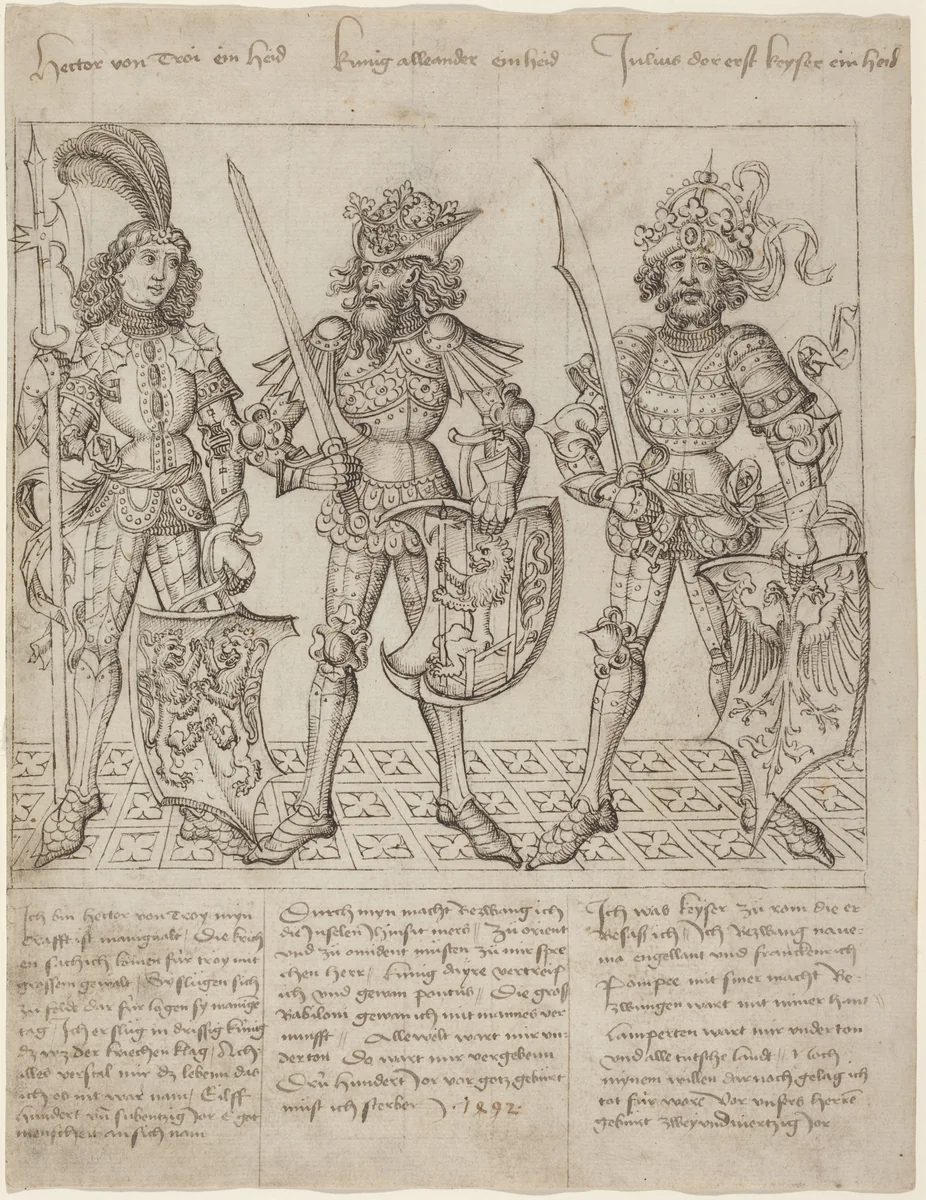 Hector von Troi ein heid
Kunig alleander ein heid
Julius der erst keyser ein heid
Ich bin hector von Troy myn
krafft ist manigualt / Die krich
en sach ich komen für troy mit
grossem gewalt / Sy slügen sich
zu felde dar für lagen sy manige
tag / Ich erslüg in drissig künig
dz wz der kriechen klag / Achi
alles verstal mir dz lebenn das
ich es nit war nam / Eilff
hundert vn sübentzig Jor e got
menscheit an sich nam
Durch myn macht Bezwang ich
die Inselen Hinsit mers // Zu orient
vnd zü occident müsten zü mir spre
chen herr / künig dayre vertreib
ich vnd gewan pontus // Die gross
Babiloni gewan ich mit mannes ver
nunfft // Alle welt wart mir vn-
derton Do wart mir vergebenn
Drü hundert Jor vor gotz gebürt
müst ich sterben 1492
Ich was keyser zü rom die er
besass ich // Ich Bezwang
engellant vnd franckenrich
Pompee mit siner macht Be-
zwungen wart mit miner hant //
Lamperten wart mir vnder ton
vnd alle tutsche landt // Noch
mynem willen dar noch gelag ich
tot für wore Vor vnsers herre
gebürt zwey vnd viertzig Jor